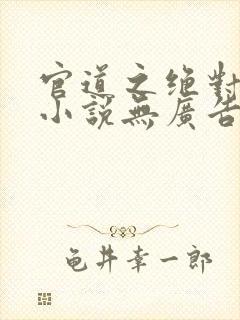 官道之绝對
小說無廣告
龟井幸一郎